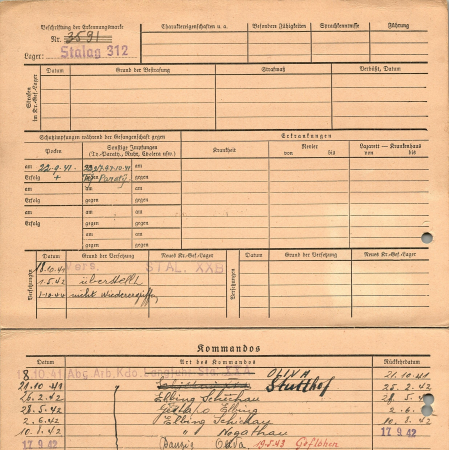 Beschriftung der Erkennungsmarke
Nr. 3591
Lager: Stalag 312
Charaktereigenschaften u. a.
Besondere Fähigkeiten
Sprachkenntnisse
Führung
Strafen im Kr.-Gef.-Lager
Datum Grund der Bestrafung Strafmaß Verbüßt, Datum
Schutzimpfungen während der Gefangenschaft gegen
Erkrankungen
Pocken
Sonstige Impfungen
(Ty.-Paraty., Ruhr, Cholera usw.)
Krankheit
Revier
von bis
Lazarett - Krankenhaus
von bis
am 22.9.41. am
Erfolg + gegen Ty. Paraty. gegen
am am am
Erfolg gegen gegen
am am am
Erfolg gegen gegen
am am
gegen gegen
Versetzungen
Datum Grund der Versetzung Neues Kr.-Gef.-Lager
18.10.41 Vers. STAL. XXB
1.5.42 überstellt
nicht wiederergriffen
Versetzungen
Datum Grund der Versetzung Neues Kr.-Gef.-Lager
Kommandos
Datum Art des Kommandos Rückkehrdatum
18.10.41 Abg. Arb. Kdo. XXA 21.10.41
21.10.41 Stutthof 25.2.42
26.2.42 Elbing Schichau
28.5.42 Gestapo Elbing 2.6.
2.6.42 Elbing Schichau
" Nogathau 17.9.42
17.9.42 Danzig Oliva 19.5.43 Geflohen